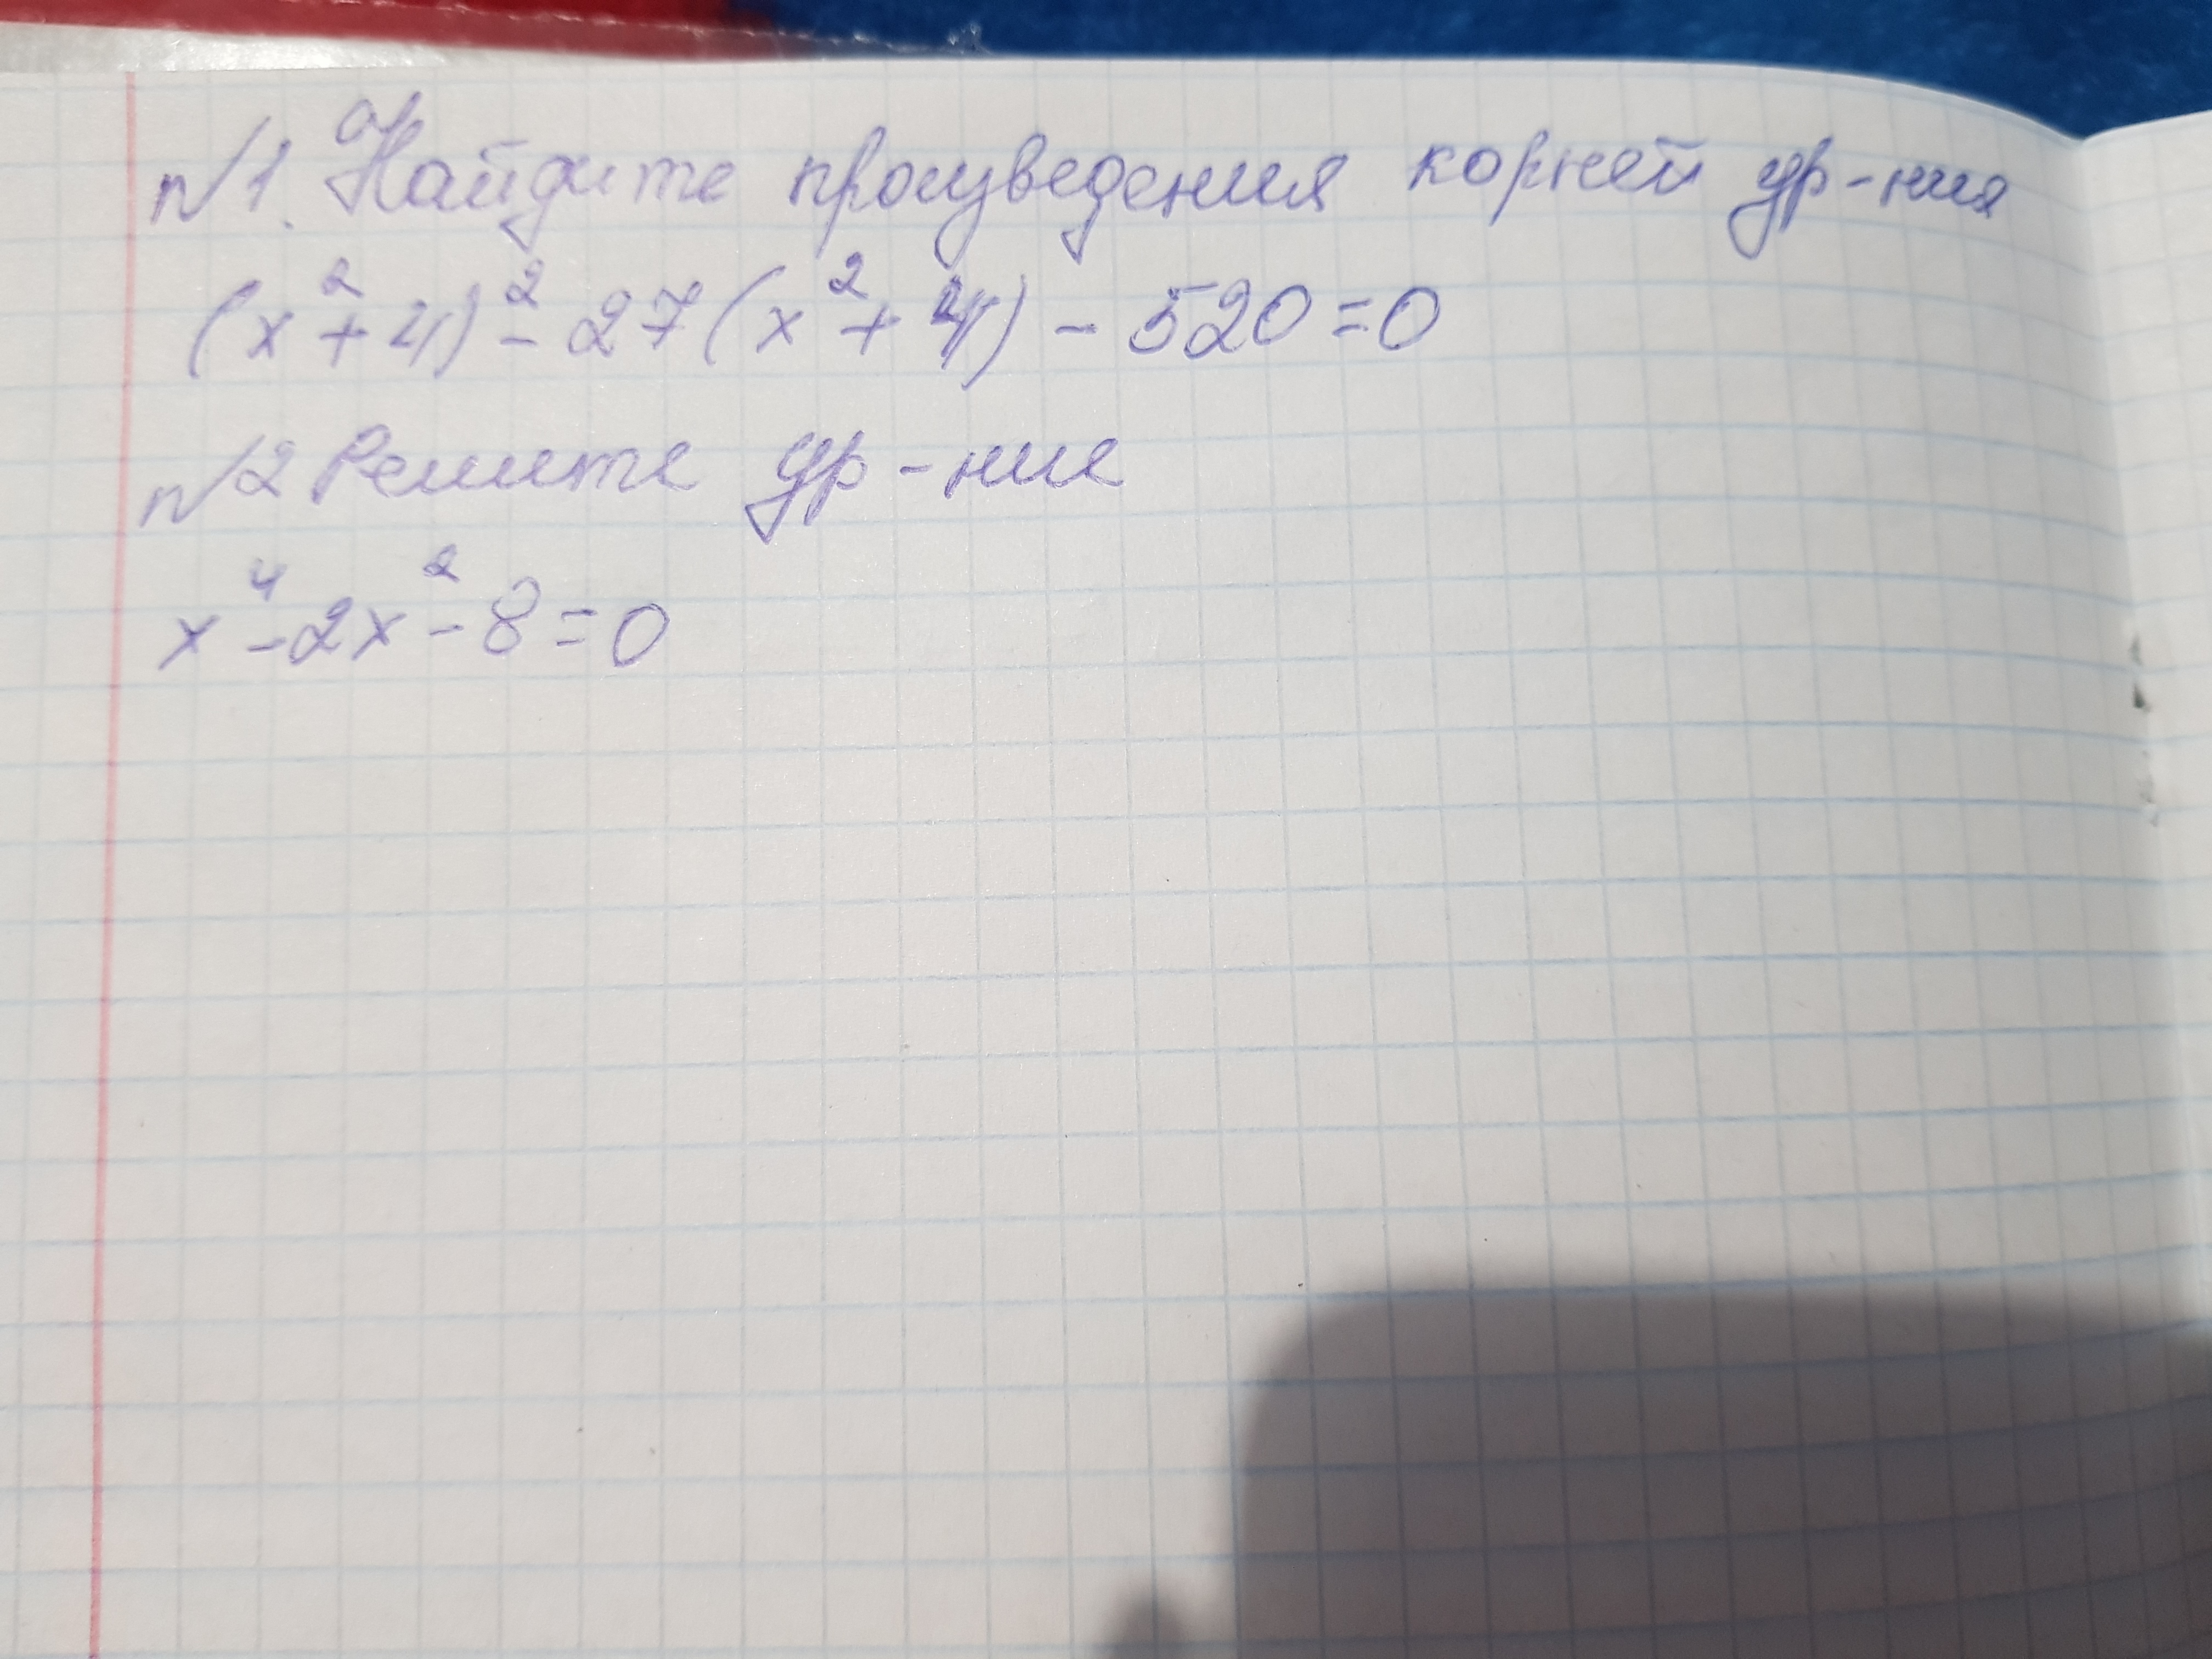 №1. Найдите произведения корней ур-ния
(x²+4)²-27(x²+4)-520=0
№2 Решите ур-ние
x⁴-2x²-8=0